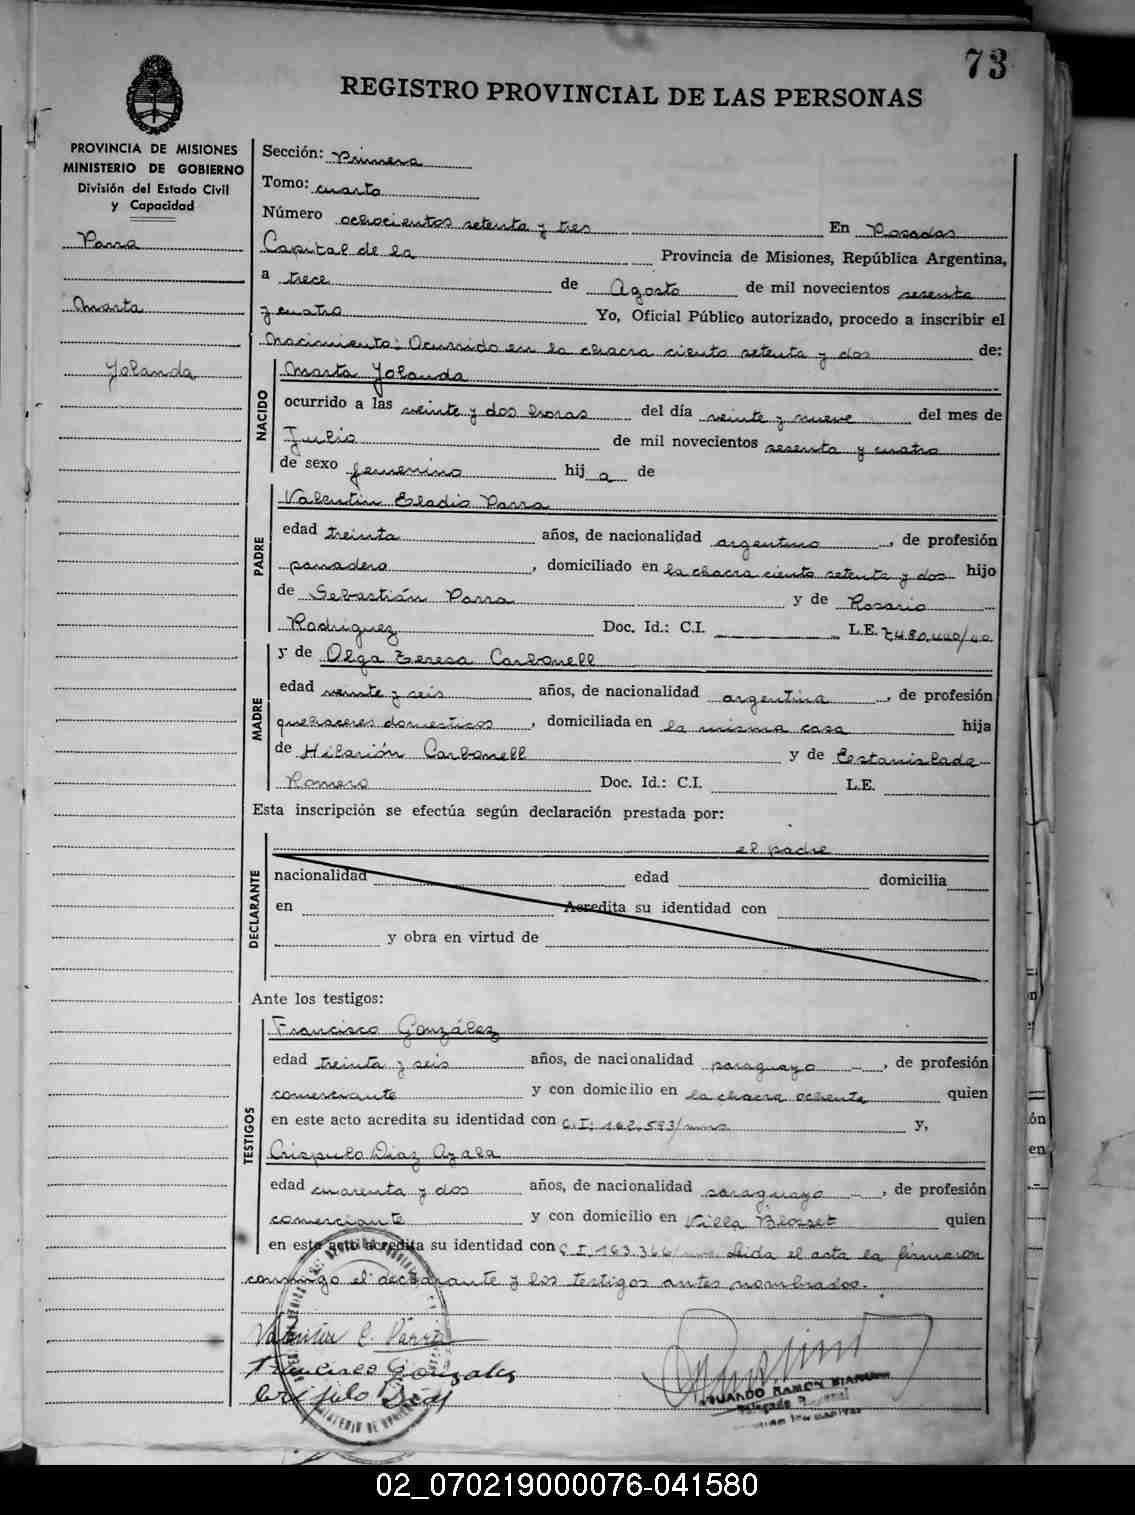 73
REGISTRO PROVINCIAL DE LAS PERSONAS
PROVINCIA DE MISIONES
MINISTERIO DE GOBIERNO
División del Estado Civil
y Capacidad
Parra
Marta
Yolanda
Sección: Primera
Tomo: cuarto
Número ochocientos setenta y tres En Posadas
Capital de la Provincia de Misiones, República Argentina,
a trece de Agosto de mil novecientos sesenta
y cuatro Yo, Oficial Público autorizado, procedo a inscribir el
Nacimiento: Ocurrido en la chacra ciento setenta y dos de:
NACIDO
Marta Yolanda
ocurrido a las veinte y dos horas del día veinte y nueve del mes de
Julio de mil novecientos sesenta y cuatro
de sexo femenino hij a de
PADRE
Valentin Eladio Parra
edad treinta años, de nacionalidad argentino, de profesión
panadero, domiciliado en la chacra ciento setenta y dos hijo
de Sebastián Parra y de Rosario
Rodriguez Doc. Id.: C.I. L.E. 7.480.440/40
MADRE
y de Olga Teresa Carbonell
edad veinte y seis años, de nacionalidad argentina, de profesión
quehaceres domesticos, domiciliada en la misma casa hija
de Hilarión Carbonell y de Estanislada
Romero Doc. Id.: C.I. L.E.
Esta inscripción se efectúa según declaración prestada por:
DECLARANTE
el padre
nacionalidad edad domicilia
en Acredita su identidad con
y obra en virtud de
Ante los testigos:
TESTIGOS
Francisco González
edad treinta y seis años, de nacionalidad paraguayo, de profesión
comerciante y con domicilio en la chacra ochenta quien
en este acto acredita su identidad con C.I: 162.593/mns y,
Crispulo Diaz Ayala
edad cuarenta y dos años, de nacionalidad paraguayo, de profesión
comerciante y con domicilio en Villa Blosset quien
en este acto acredita su identidad con C.I. 163.366/mns. Leida el acta la firmaron
conmigo el declarante y los testigos antes nombrados.
Valentin E. Parra
Francisco Gonzales
Crispulo Diaz
EDUARDO RAMON
Delegado
02_070219000076-041580